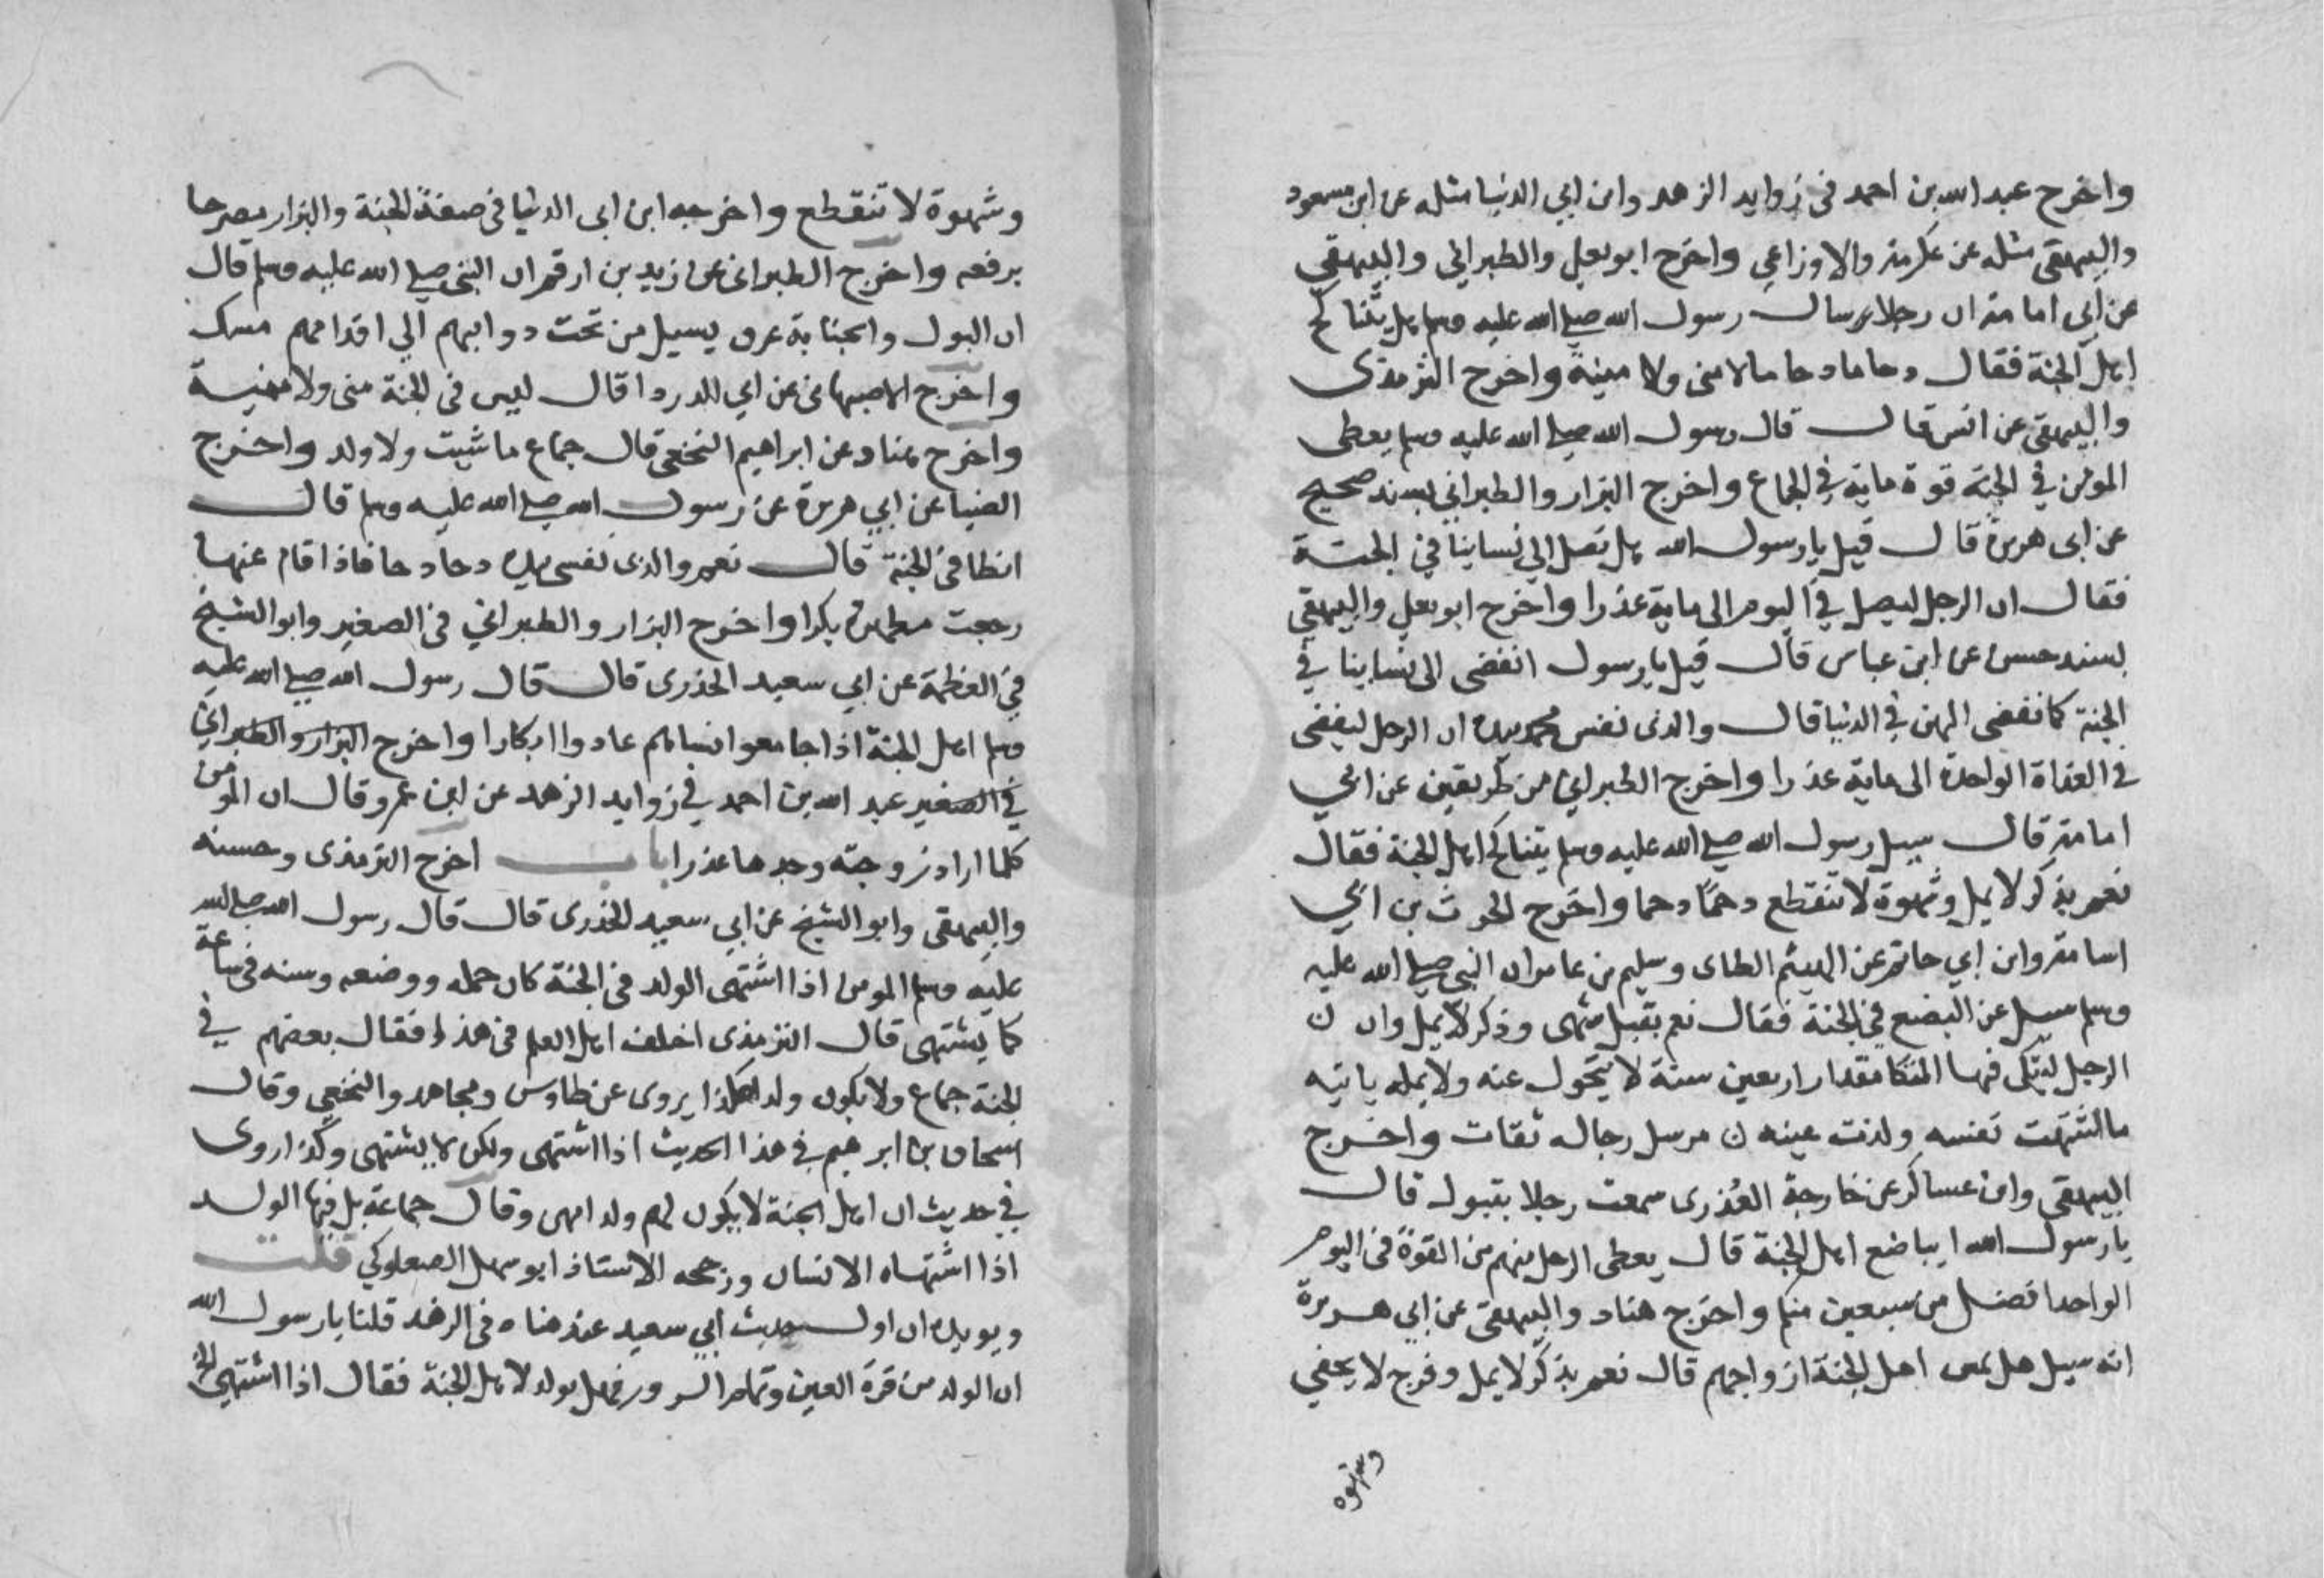 واخرج عبد الله بن احمد فى زوايد الزهد وابن ابي الدنيا مثله عن ابن مسعود
والبيهقى مثله عن عكرمة والاوزاعي واخرج ابو يعلي والطبراني والبيهقي
عن ابي امامة ان رجلا سال رسول الله صلي الله عليه وسلم هل يتناكح
اهل الجنة فقال دحاما دحاما لا منى ولا منية واخرج الترمذى
والبيهقى عن انس قال قال رسول الله صلي الله عليه وسلم يعطى
المومن في الجنة قوة ماية في الجماع واخرج البزار والطبراني بسند صحيح
عن ابى هريرة قال قيل يا رسول الله هل نصل الي نساينا في الجنة
فقال ان الرجل ليصل في اليوم الى ماية عذرا واخرج ابو يعلي والبيهقي
بسند حسن عن ابن عباس قال قيل يا رسول انفضى الى نساينا في
الجنة كما نفضى اليهن في الدنيا قال والذى نفس محمد بيده ان الرجل ليفضى
فى الغداة الواحدة الى ماية عذرا واخرج الطبراني من طريقين عن ابي
امامة قال سيل رسول الله صلي الله عليه وسلم يتناكح اهل الجنة فقال
نعم بذكر لا يمل وشهوة لا تنقطع دحمًا دحما واخرج الحرث بن ابي
اسامة وابن ابي حاتم عن الهيثم الطاى وسليم بن عامر ان النبى صلي الله عليه
وسلم سيل عن البضع في الجنة فقال نعم بقبل شهى وذكر لا يمل وان ن
الرجل ليتكى فيها المتكا مقدار اربعين سنة لا يتحول عنه ولا يمله ياتيه
ما اشتهت نفسه ولذت عينه ن مرسل رجاله ثقات واخرج
البيهقى وابن عساكر عن خارجة العُذرى سمعت رجلا بتبوك قال
يا رسول الله ايباضع اهل الجنة قال يعطى الرجل منهم من القوة فى اليوم
الواحد افضل من سبعين منكم واخرج هناد والبيهقى عن ابي هريرة
انه سيل هل يمس اهل الجنة ازواجهم قال نعم بذكر لا يمل وفرج لا يحفي
وشهوة
وشهوة لا تنقطع واخرجه ابن ابى الدنيا فى صفة الجنة والبزار مصرحا
برفعه واخرج الطبرانى عن زيد بن ارقم ان النبى صلي الله عليه وسلم قال
ان البول والجنابة عرق يسيل من تحت ذوايبهم الي اقدامهم مسك
واخرج الاصبهانى عن ابي الدردا قال ليس فى الجنة منى ولا منية
واخرج هناد عن ابراهيم النخعى قال جماع ما شيت ولا ولد واخرج
الضيا عن ابي هريرة عن رسول الله صلي الله عليه وسلم قال
انطا فى الجنة قال نعم والذى نفسى بيده دحا دحا فاذا قام عنها
رجعت مطهرة بكرا واخرج البزار والطبراني فى الصغير وابو الشيخ
في العظمة عن ابي سعيد الخدرى قال قال رسول الله صلي الله عليه
وسلم اهل الجنة اذا جامعوا نساهم عادوا ابكارا واخرج البزار والطبراني
في الصغير عبد الله بن احمد في زوايد الزهد عن ابن عمرو قال ان المومن
كلما اراد زوجته وجدها عذرا باب اخرج الترمذى وحسنه
والبيهقى وابو الشيخ عن ابي سعيد الخدرى قال قال رسول الله صلي الله
عليه وسلم المومن اذا اشتهى الولد فى الجنة كان حمله ووضعه وسنه فى ساعة
كما يشتهى قال الترمذى اختلف اهل العلم فى هذا فقال بعضهم في
الجنة جماع ولا يكون ولد هكذا يروى عن طاوس ومجاهد والنخعي وقال
اسحاق بن ابرهيم في هذا الحديث اذا اشتهى ولكن لا يشتهى وكذا روى
في حديث ان اهل الجنة لا يكون لهم ولد انتهى وقال جماعة بل فيها الولد
اذا اشتهاه الانسان ورجحه الاستاذ ابو سهل الصعلوكي قلت
ويويده ان اول حديث ابي سعيد عند هناد فى الزهد قلنا يا رسول الله
ان الولد من قرة العين وتمام السرور فهل يولد لاهل الجنة فقال اذا اشتهى الخ